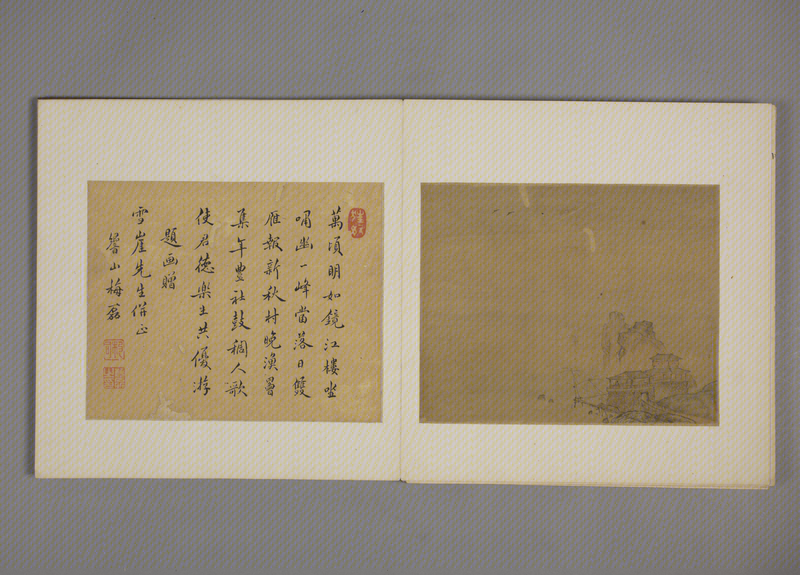 萬頃明如鏡江樓坐
嘯幽一峰當落日雙
雁報新秋村晚漁罾
集年豐社鼓稠人歌
使君德樂土共優游
題画贈
雪崖先生併正
魯山梅